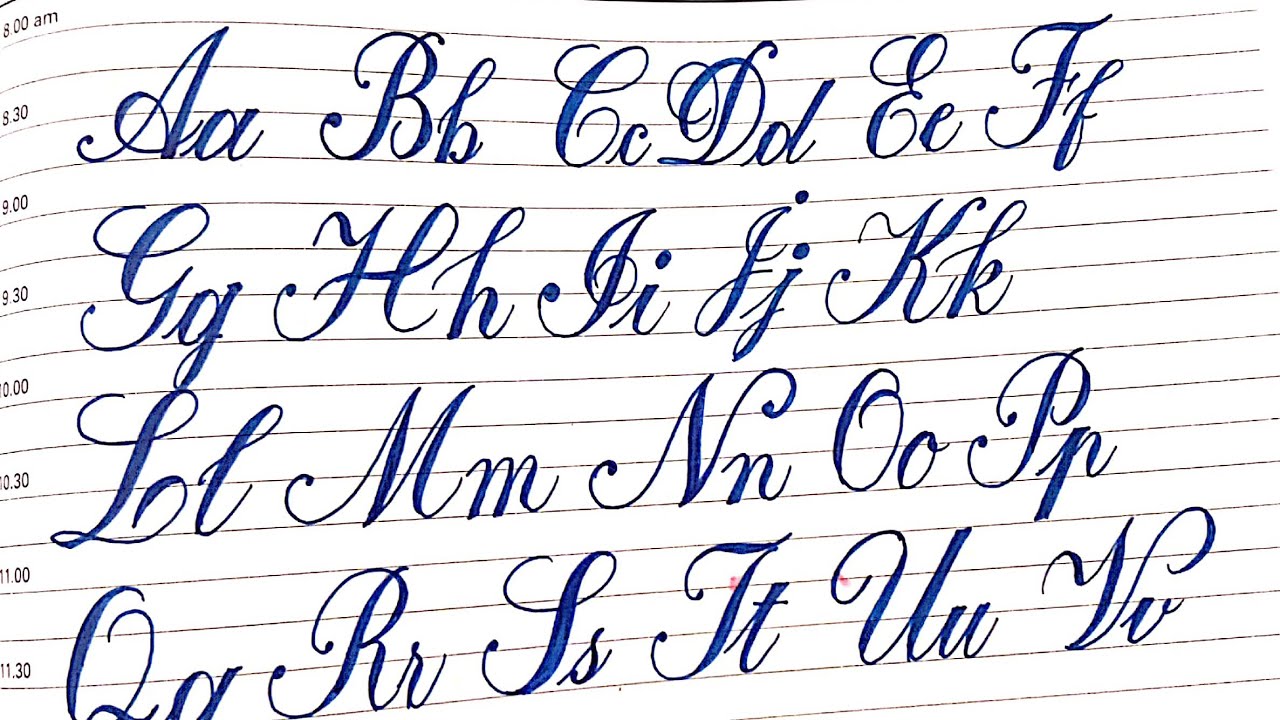 8.00 am
Aa Bb Cc Dd Ee Ff
8.30
9.00
Gg Hh Ii Jj Kk
9.30
10.00
Ll Mm Nn Oo Pp
10.30
11.00
Qq Rr Ss Tt Uu Vv
11.30